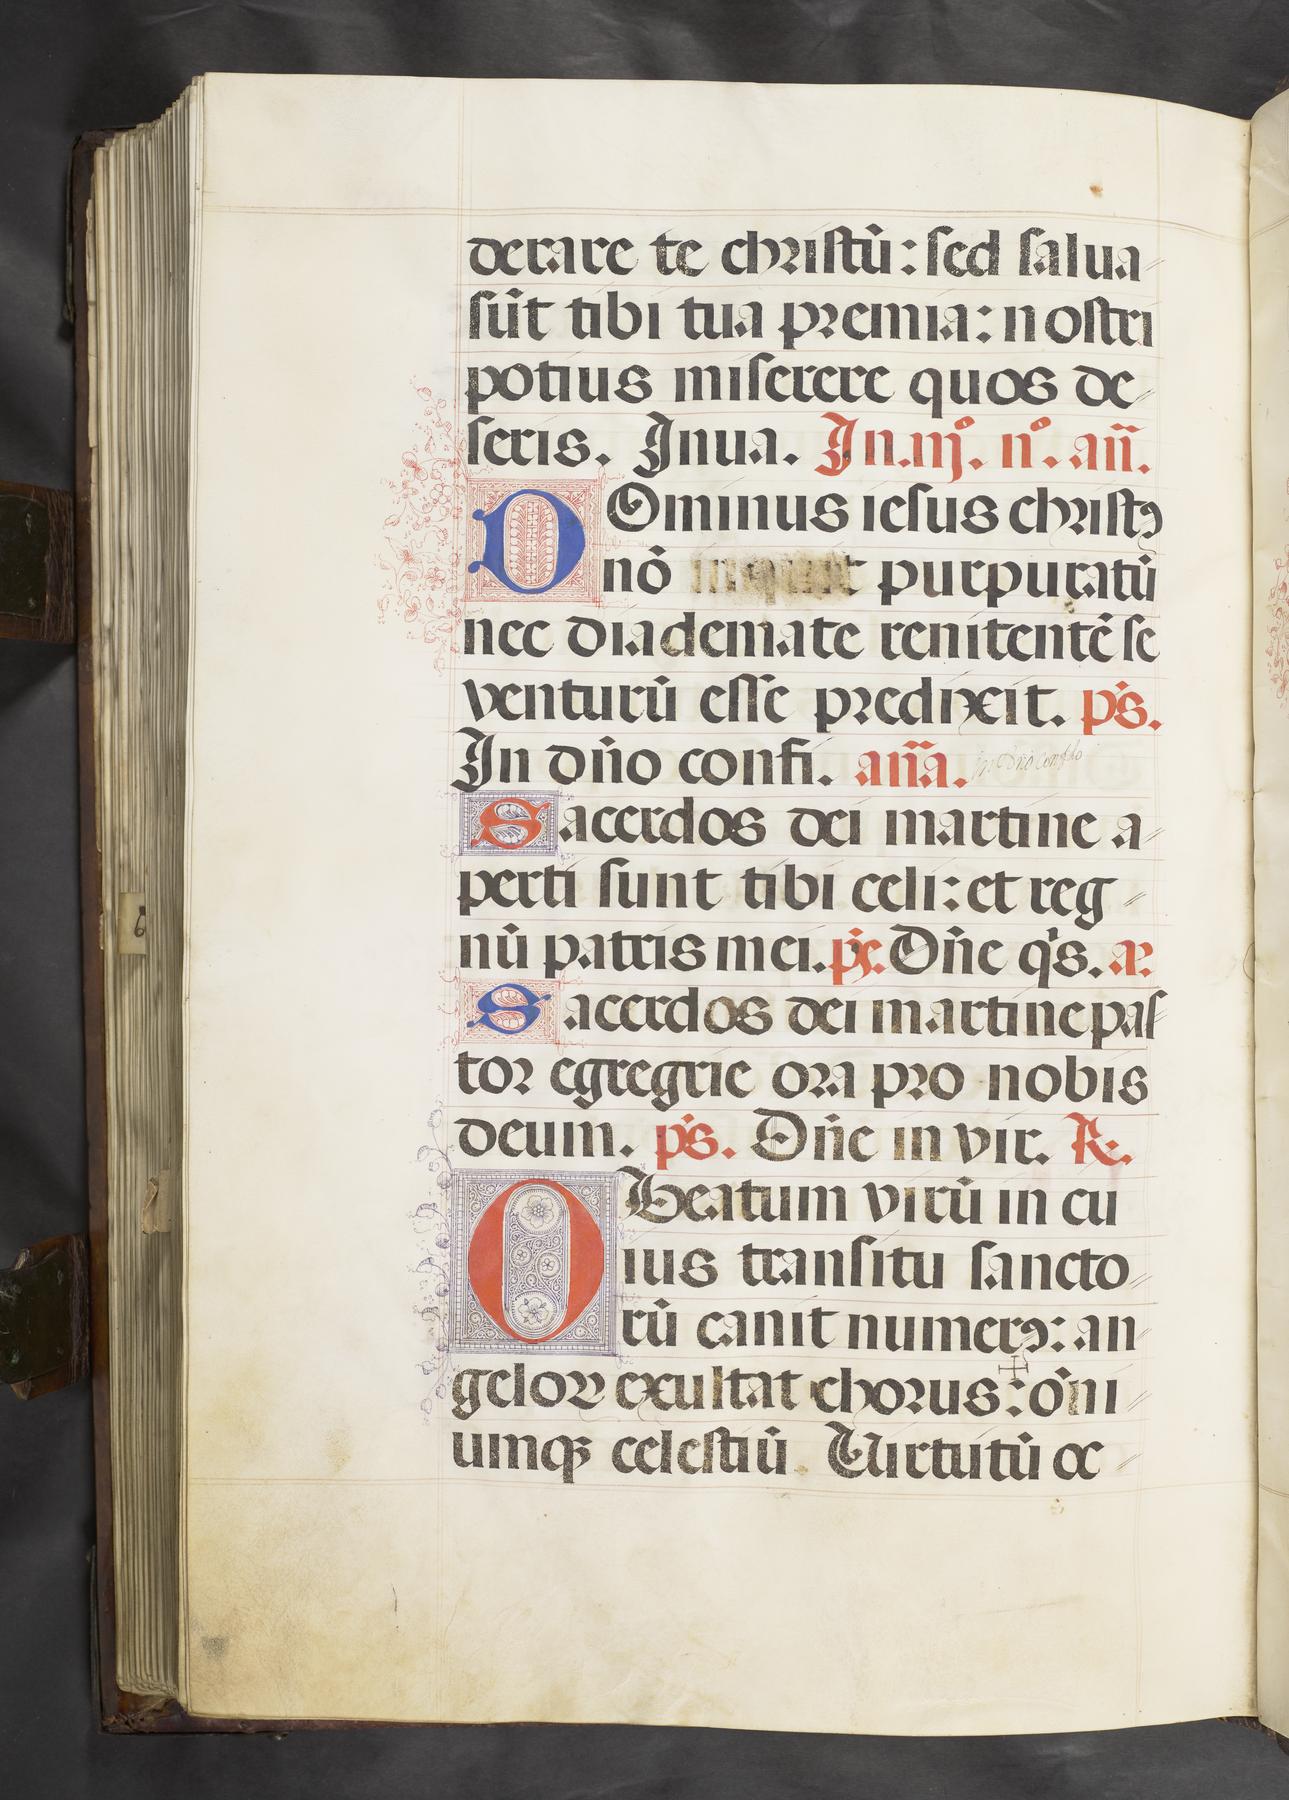 derare te christū: sed salua
sūt tibi tua premia: nostri
potius miserere quos de-
seris. Inua. In.iijº. nº. añ.
DOminus iesus christꝰ
nō inquit purpuratū
nec diademate renitentē se
venturū esse predixit. pˢs.
In dño confi. aña. In Dño confido
Sacerdos dei martine a-
perti sunt tibi celi: et reg
nū patris mei. ps. Dñe qˢs. añ.
Sacerdos dei martine pas
tor egregrie ora pro nobis
deum. pˢs. Dñe in vir. R.
O Beatum virū in cu
ius transitu sancto
rū canit numerꝰ: an
geloꝝ exultat chorus: oīni
umqꝫ celestiū Virtutū oc
6